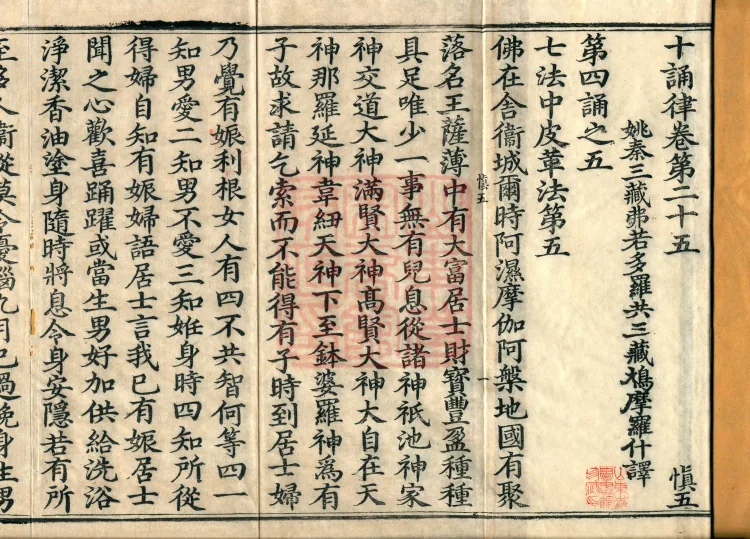 十誦律卷第二十五 愼五
姚秦三藏弗若多羅共三藏鳩摩羅什譯
第四誦之五
七法中皮革法第五
佛在舍衞城爾時阿濕摩伽阿槃地國有聚
愼五 一
落名王薩薄中有大富居士財寶豐盈種種
具足唯少一事無有兒息從諸神祇池神家
神交道大神滿賢大神髙賢大神大自在天
神那羅延神韋紐天神下至鉢婆羅神爲有
子故求請乞索而不能得有子時到居士婦
乃覺有娠利根女人有四不共智何等四一
知男愛二知男不愛三知姙身時四知所從
得婦自知有娠婦語居士言我已有娠居士
聞之心歡喜踊躍或當生男好加供給洗浴
淨潔香油塗身隨時將息令身安隱若有所
至多人衞從莫令憂惱九月已過娩身生男